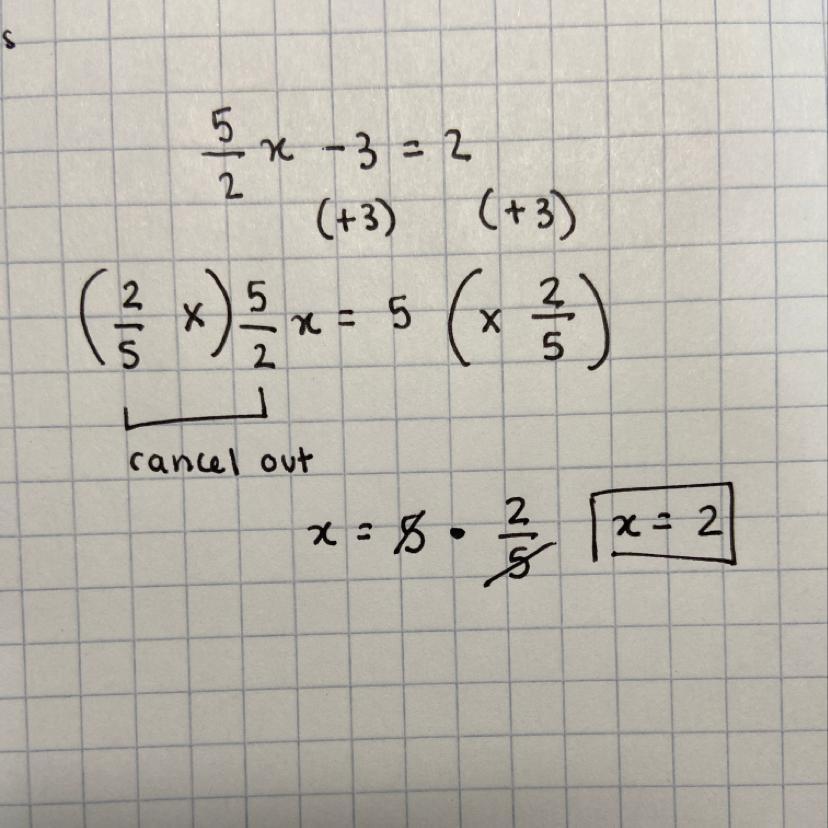 s
5/2 x - 3 = 2
(+3) (+3)
(2/5 ×) 5/2 x = 5 (× 2/5)
cancel out
x = 5 • 2/5 x = 2